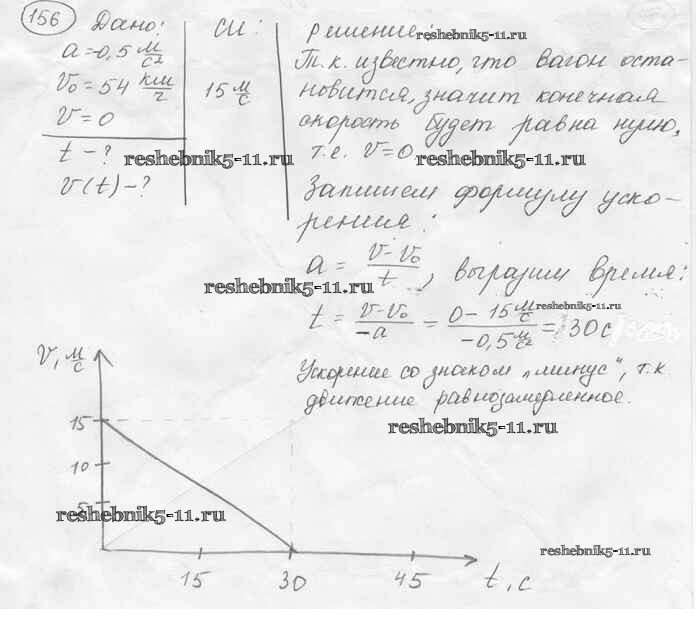 156 Дано:
a=0,5 м/с²
v₀=54 км/г
v=0
t - ?
v(t) - ?
СИ:
15 м/с
Решение:
reshebnik5-11.ru
Т.к. известно, что вагон оста-
новится, значит конечная
скорость будет равна нулю,
т.е. v=0
reshebnik5-11.ru
reshebnik5-11.ru
Запишем формулу уско-
рения:
a = (v-v₀)/t, выразим время:
reshebnik5-11.ru
t = (v-v₀)/-a = (0-15 м/с)/(-0,5 м/с²) = 30 с
reshebnik5-11.ru
Ускорение со знаком „минус“, т.к
движение равнозамедленное.
reshebnik5-11.ru
V, м/с
15
10
5
reshebnik5-11.ru
reshebnik5-11.ru
15 30 45 t, с